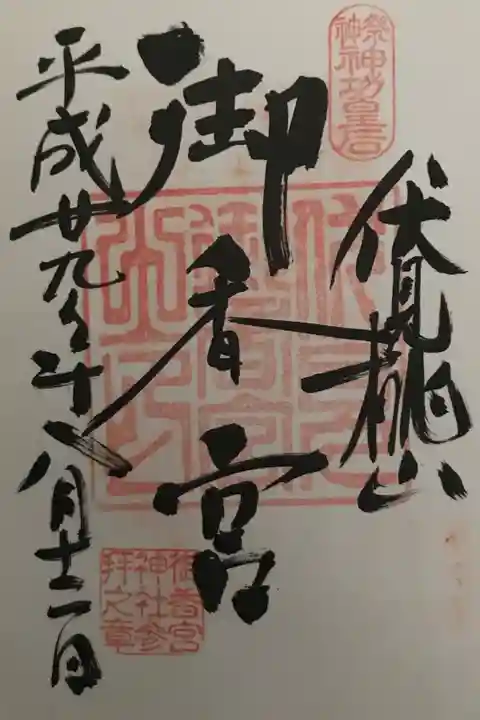 祭神
神功皇后
伏見桃山
御香宮
御香宮
神社参
拝之章
平成廿九年八月十二日